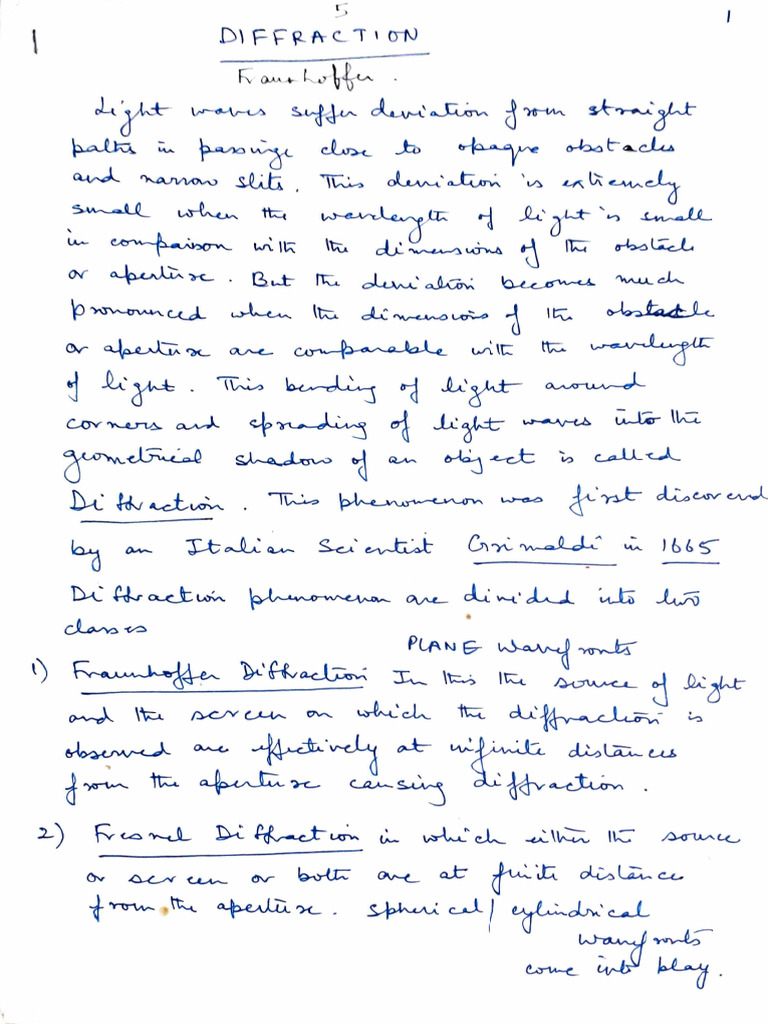 5
1
1
DIFFRACTION
Fraunhoffer.
Light waves suffer deviation from straight
paths in passing close to opaque obstacles
and narrow slits. This deviation is extremely
small when the wavelength of light is small
in compaison with the dimensions of the obstacle
or aperture. But the deviation becomes much
pronounced when the dimensions of the obstacle
or aperture are comparable with the wavelength
of light. This bending of light around
corners and spreading of light waves into the
geometrical shadow of an object is called
Diffraction. This phenomenon was first discovered
by an Italian Scientist Grimaldi in 1665
Diffraction phenomenon are divided into two
classes
PLANE wavefronts
1) Fraunhoffer Diffraction In this the source of light
and the screen on which the diffraction is
observed are effectively at infinite distances
from the aperture causing diffraction.
2) Fresnel Diffraction in which either the source
or screen or both are at finite distances
from the aperture. spherical/cylindrical
wavefronts
come into play.